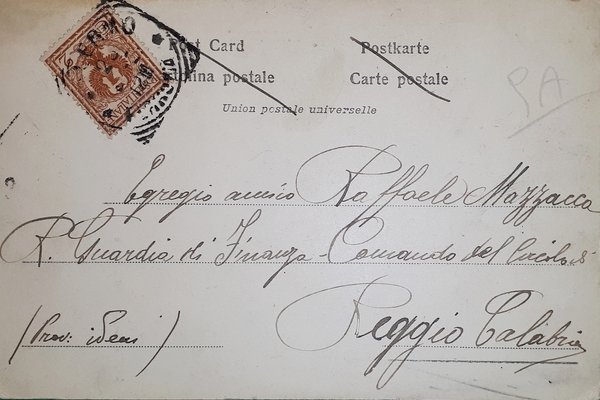 Post Card Postkarte
Cartolina postale Carte postale
Union postale universelle
Egregio amico Raffaele Mazzacca
R. Guardia di Finanza - Comando del Circolo di
Reggio Calabria
(Prov: idem)